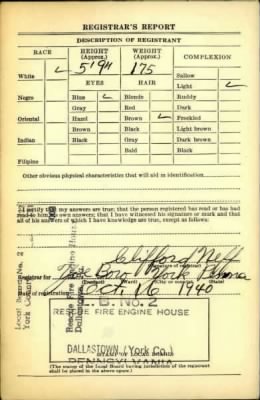 REGISTRAR'S REPORT
DESCRIPTION OF REGISTRANT
RACE HEIGHT (Approx.) WEIGHT (Approx.) COMPLEXION
5' 9" 175
White Sallow
EYES HAIR Light
Negro Blue Blonde Ruddy
Gray Red Dark
Oriental Hazel Brown Freckled
Brown Black Light brown
Indian Black Gray Dark brown
Bald Black
Filipino
Other obvious physical characteristics that will aid in identification
I certify that my answers are true; that the person registered has read or has had
read to him his own answers; that I have witnessed his signature or mark and that
all of his answers of which I have knowledge are true, except as follows:
Local Board No. 2
York County
Rescue Fire Engine House
Dallastown
Clifford Neff
Registrar for York Penna
Date of registration Oct. 16 1940
L. B. No. 2
RESCUE FIRE ENGINE HOUSE
DALLASTOWN (York Co.)
PENNSYLVANIA
STAMP OF LOCAL BOARD
(The stamp of the Local Board having jurisdiction of the registrant
shall be placed in the above space.)